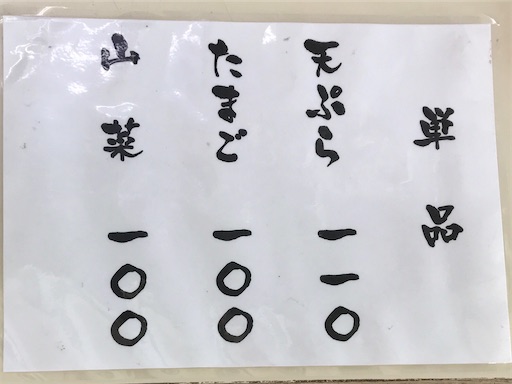 単品
天ぷら 一一〇
たまご 一〇〇
山菜 一〇〇